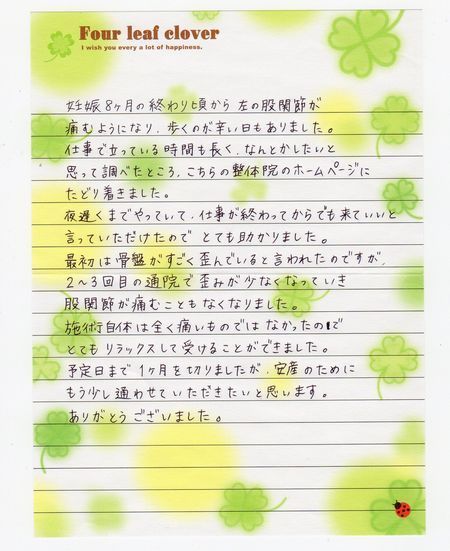 Four leaf clover
I wish you every a lot of happiness.
妊娠8ヶ月の終わり頃から左の股関節が
痛むようになり、歩くのが辛い日もありました。
仕事で立っている時間も長く、なんとかしたいと
思って調べたところ、こちらの整体院のホームページに
たどり着きました。
夜遅くまでやっていて、仕事が終わってからでも来ていいと
言っていただけたので とても助かりました。
最初は骨盤がすごく歪んでいると言われたのですが、
2~3回目の通院で歪みが少なくなっていき
股関節が痛むこともなくなりました。
施術自体は全く痛いものではなかったので
とてもリラックスして受けることができました。
予定日まで1ヶ月を切りましたが、安産のために
もう少し通わせていただきたいと思います。
ありがとうございました。